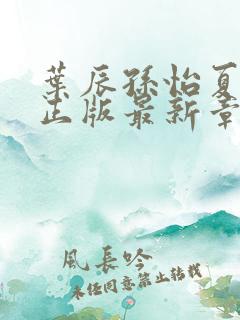 葉辰孫怡夏
正版最新章
風長吟
未經同意禁止轉載